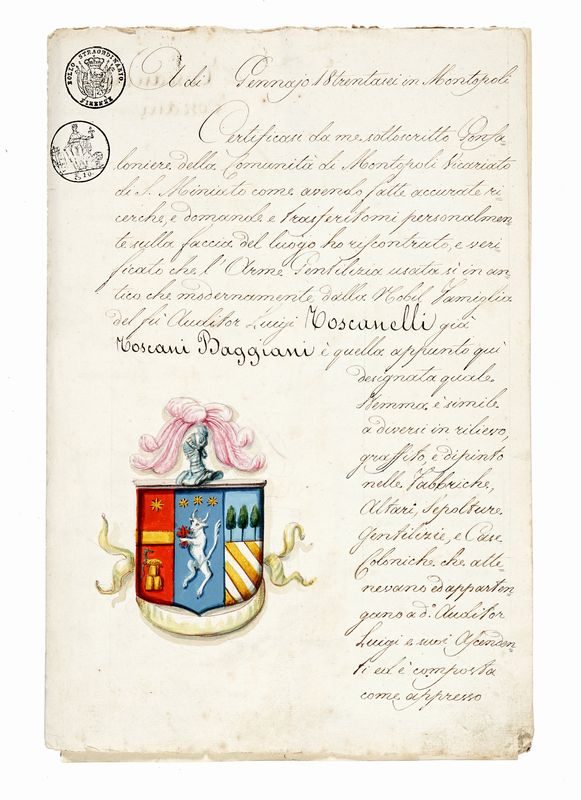 BOLLO STRAORDINARIO.
FIRENZE
C. 10.
A dì Gennajo 18trentasei in Montopoli
Certificasi da me sottoscritto Gonfa=
loniere della Comunità di Montopoli Vicariato
di S. Miniato come avendo fatte accurate ri=
cerche, e domande e trasferitomi personalmen=
te sulla faccia del luogo ho riscontrato, e veri=
ficato che l'Arme Gentilizia usata sì in an=
tico che modernamente dalla Nobil Famiglia
del fù Auditor Luigi Toscanelli già
Toscani Baggiani è quella appunto quì
designata quale
Stemma è simile
a diversi in rilievo,
graffito, e dipinto
nelle Fabbriche,
Altari, Sepolture
Gentilizie, e Case
Coloniche che atte=
nevano ed apparten=
gano a d.º Auditor
Luigi e suoi Ascenden=
ti ed è composta
come appresso